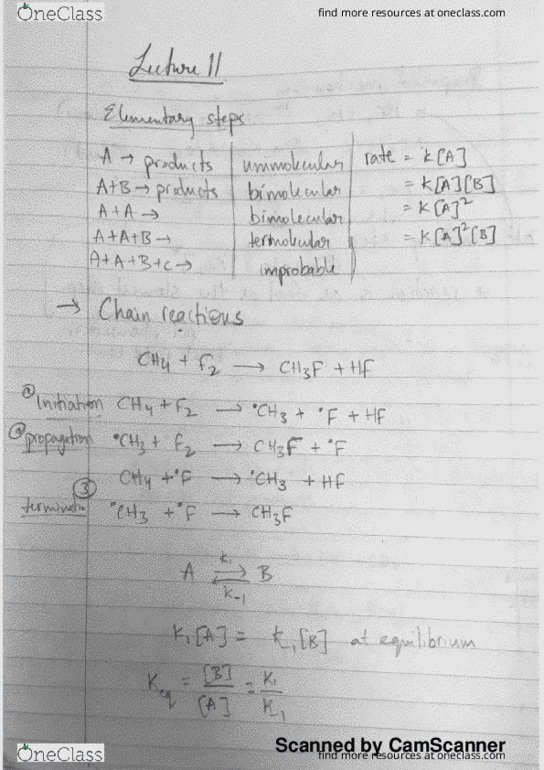 OneClass
find more resources at oneclass.com
Lecture 11
Elementary steps
A → products | unimolecular | rate = k[A]
A+B → products | bimolecular | = k[A][B]
A+A → | bimolecular | = k[A]²
A+A+B → | termolecular | = k[A]²[B]
A+A+B+C → | improbable
→ Chain reactions
CH4 + F2 → CH3F + HF
① Initiation CH4 + F2 → •CH3 + •F + HF
② propagation •CH3 + F2 → CH3F + •F
CH4 + •F → •CH3 + HF
③ termination •CH3 + •F → CH3F
A ⇌ B
k1
k-1
K1[A] = k-1[B] at equilibrium
Keq = [B]/[A] = K1/K-1
Scanned by CamScanner
OneClass
find more resources at oneclass.com